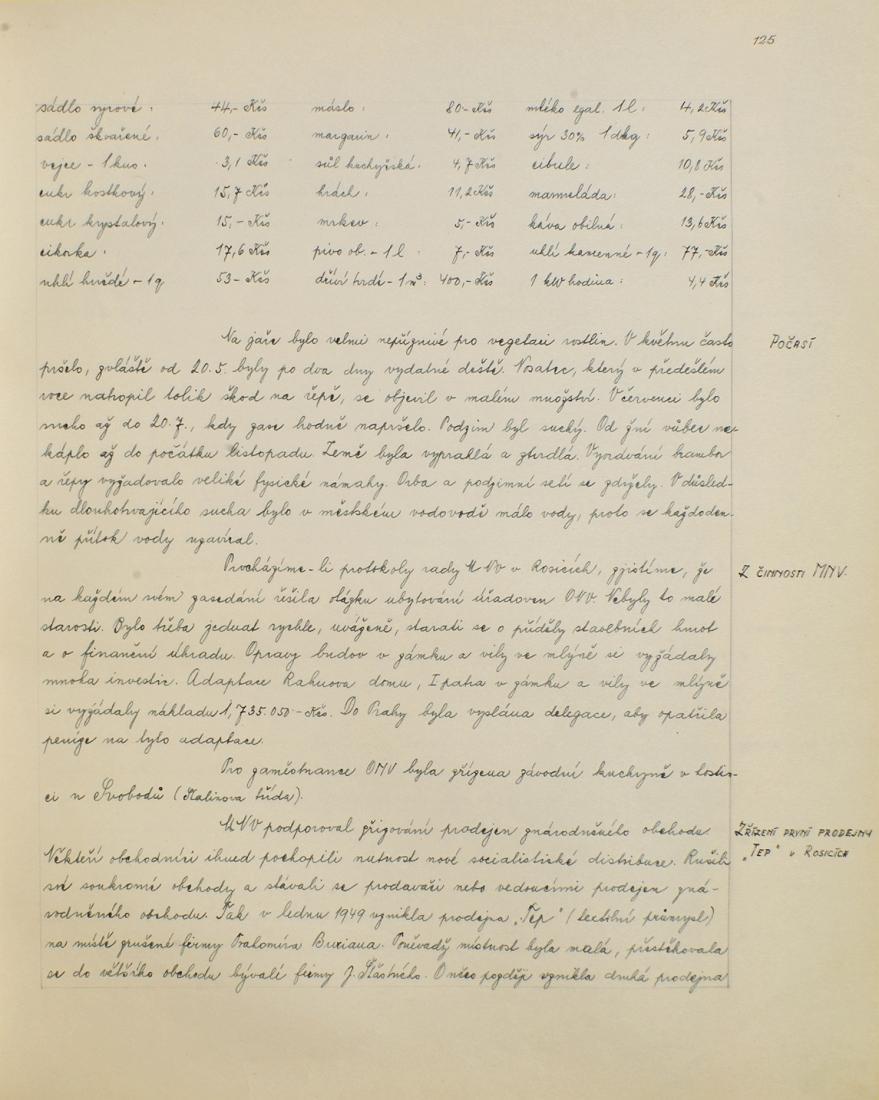 125
sádlo syrové: 44,- Kčs máslo: 80- Kčs mléko egal. 1 l: 4,2 Kčs
sádlo škvařené: 60,- Kčs margarin: 41,- Kčs sýr 30% 1 dkg: 5,9 Kčs
vejce - 1 kus. 3,1 Kčs sůl kuchyňská: 4,7 Kčs cibule: 10,8 Kčs
cukr kostkový: 15,7 Kčs hrách: 11,2 Kčs marmeláda: 28,- Kčs
cukr krystalový: 15,- Kčs mrkev: 5,- Kčs káva obilná: 13,6 Kčs
cikorka: 17,6 Kčs pivo ob. - 1 l: 7,- Kčs uhlí kamenné - 1q: 77,- Kčs
uhlí hnědé - 1 q 53- Kčs dříví tvrdé - 1 m³: 400,- Kčs 1 kW hodina: 4,4 Kčs
Na jaře bylo velmi nepříznivé pro vegetaci rostlin. V květnu často
POČASÍ
pršelo, zvláště od 20.5. byly po dva dny vydatné deště. Nosatec, který v předešlém
roce nahopil tolik škod na řepě, se objevil v malém množství. V červenci bylo
sucho až do 20.7., kdy zase hodně napršelo. Podzim byl suchý. Od žní vůbec ne-
káplo až do počátku listopadu. Země byla vyprahlá a ztvrdlá. Vyorávání brambor
a řepy vyžadovalo veliké fysické námahy. Orba a podzimní setí se zdržely. V důsled-
ku dlouhotrvajícího sucha bylo v městském vodovodě málo vody, proto se každoden-
ně přítok vody uzavíral.
Procházíme-li protokoly rady MNV v Rosicích, zjistíme, že
Z ČINNOSTI MNV.
na každém svém zasedání řešila otázku ubytování úřadoven ONV. Nebyly to malé
starosti. Bylo třeba jednat rychle, uváženě, starati se o příděly stavebních hmot
a o finanční úhradu. Opravy budov v zámku a vily ve mlýně si vyžádaly
mnoha investic. Adaptace Kahnova domu, I patra v zámku a vily ve mlýně
si vyžádaly nákladu 1,735.050- Kčs. Do Prahy byla vyslána delegace, aby opatřila
peníze na tyto adaptace.
Pro zaměstnance ONV byla zřízena závodní kuchyně v hostin-
ci u Svobodů (Stalinova třída).
MNV podporoval zřizování prodejen znárodněného obchodu.
ZŘÍZENÍ PRVNÍ PRODEJNY
„TEP" v ROSICÍCH
Někteří obchodníci ihned pochopili nutnost nové socialistické distribuce. Rušili
své soukromé obchody a stávali se prodavači nebo vedoucími prodejen zná-
rodněného obchodu. Tak v lednu 1949 vznikla prodejna „Tep" (textilní průmysl)
na místě zrušené firmy Bruriana. Poněvadž místnost byla malá, přestěhovala
se do většího obchodu bývalé firmy J. Šťastného. O něco později vznikla druhá prodejna